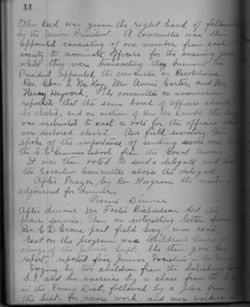 44
Ellen Reed was given the right hand of fellowship
by the Union President. A Committee was then
appointed consisting of one member from each
society to nominate officers for the ensuing year
while they were transacting their business the
President appointed the committee on Resolutions,
Rev. Chas. J. Mrs. Annie Carter, and Mr.
Henry Hayward. The Committee on nominations
reported that the same board of officers should
be elected, and on motion of the
was instructed to cast a vote for the officers who
were declared elected. Our field secretary then
spoke of the importance of sending some one
the C.E. Summer School from the Local Union.
It was then voted to send a delegate and that
the Executive Committee choose this delegate.
After Prayer by Rev. the meeting
adjourned for dinner.
Picnic Dinner
After dinner Mr. Fred Richardson led the
praise service then an interesting letter from
Rev. C. D. Crane past field Sec'y was read
Next on the program was Childrens hour
charge of the Junior Supt. She then gave her
report, reported five Junior Societies in the Union
Singing by two children from the Salisbury
S.S. and an exercise by a class from the
in the Emery Dist. followed by a plea from
the Supt. for more work, and more workers